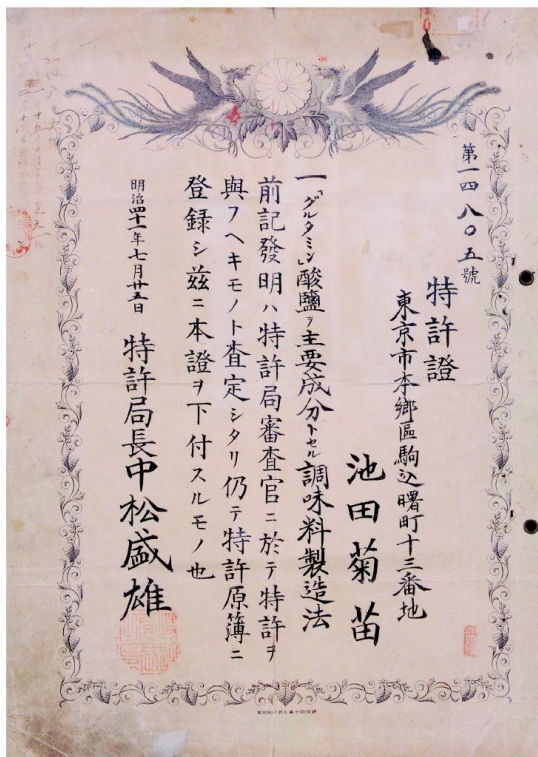 第一四八〇五號
特許證
東京市本鄉區駒込曙町十三番地
池田菊苗
一「グルタミン」酸鹽ヲ主要成分トセル調味料製造法
前記發明ハ特許局審査官ニ於テ特許ヲ
與フヘキモノト査定シタリ仍テ特許原簿ニ
登録シ玆ニ本證ヲ下付スルモノ也
明治四十一年七月廿五日
特許局長中松盛雄